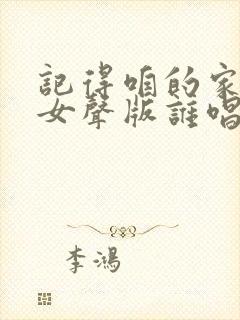 記得咱的家
女聲版誰唱
李鴻